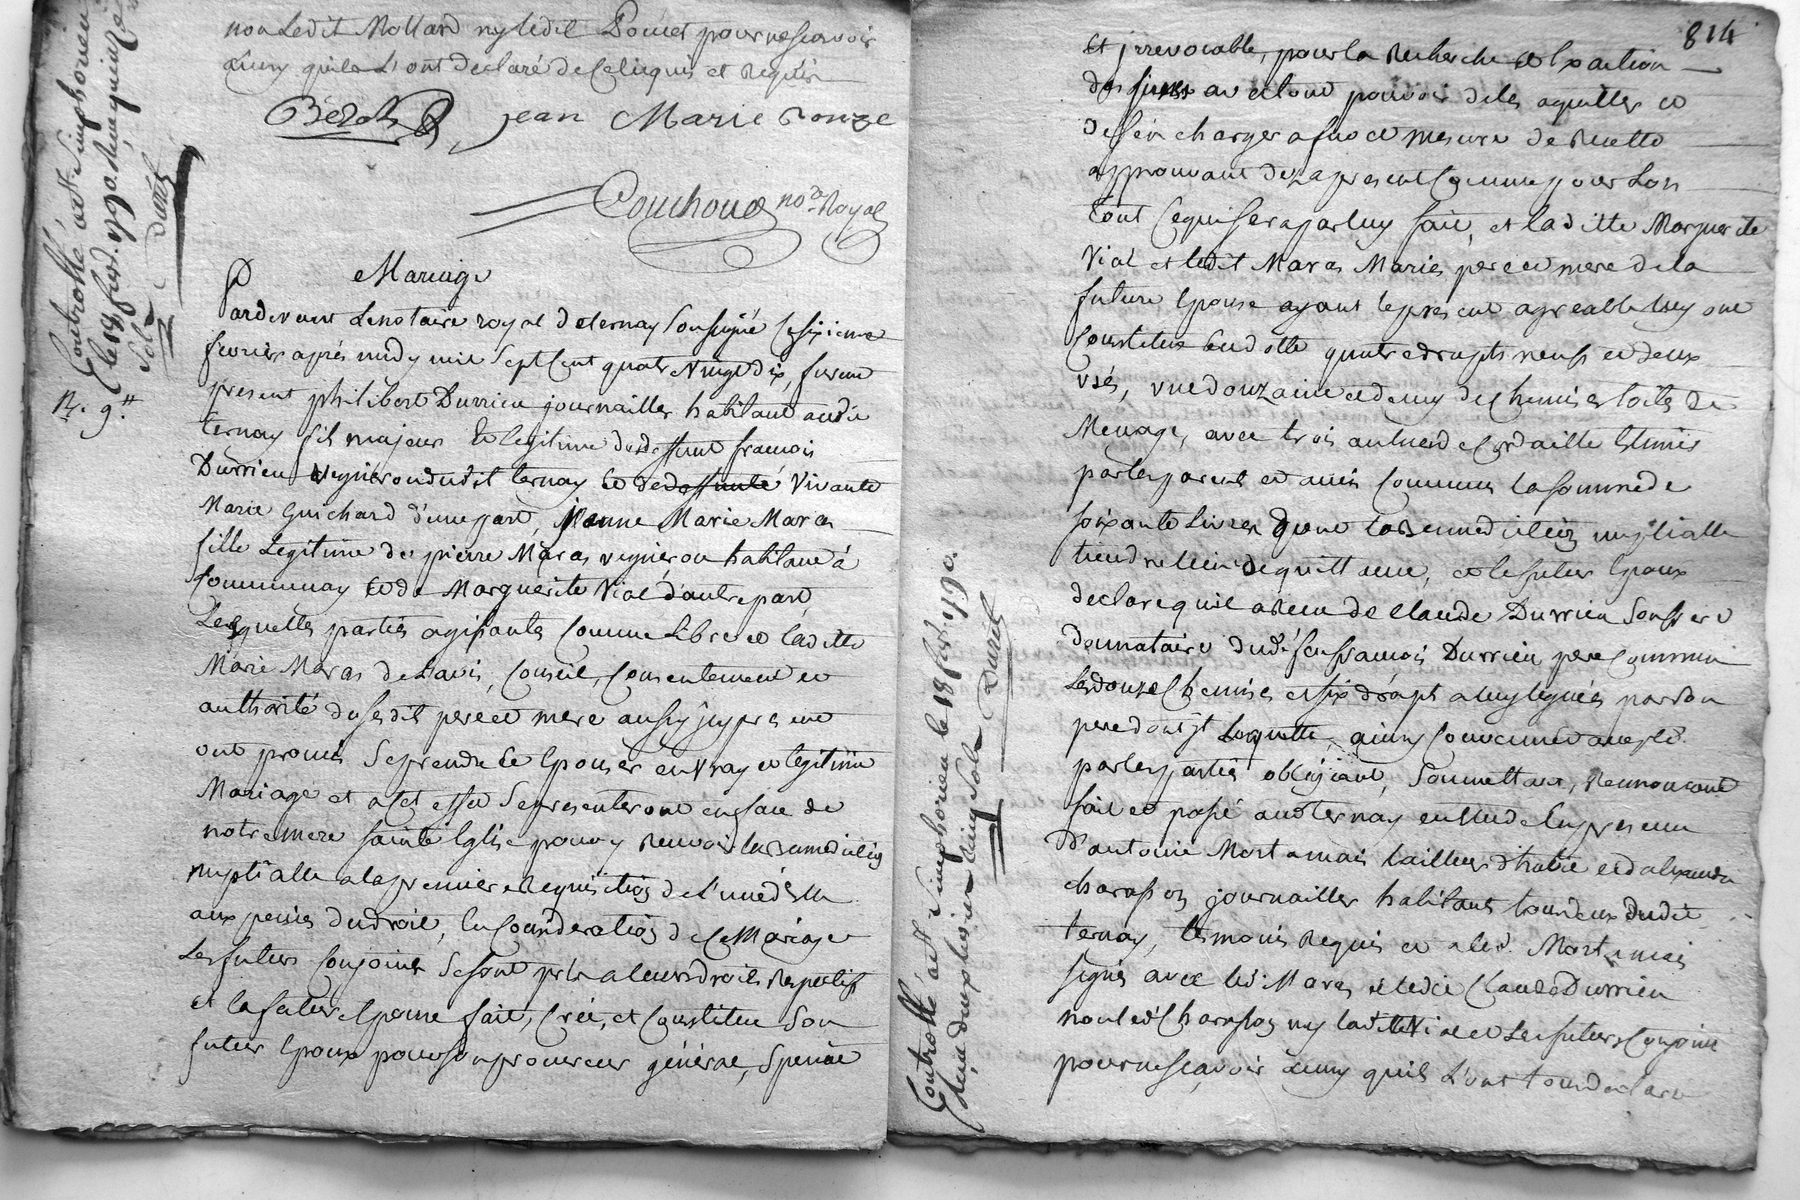 non ledit Mollard ny ledit Poncet pour ne scavoir
ainsy quils L'ont declaré de ce enquis et requis
Bérod jean Marie ronze
Couchoud no.re Royal
Controllé a St simphorien
le 18 fevr. 1790. Reçu quinze
sols Durel
R. 9.tt
Mariage
Pardevant Le notaire royal de ternay soussigné Ce sixieme
fevrier aprés midy mil sept Cent quatre vingt dix, furent
present philibert Durrieu journaillier habitant audit
ternay fils majeur et legitime de deffunt francois
Durrieu vigneron dudit ternay et de deffunte vivante
Marie Guichard d'une part, jeanne Marie Maras
fille Legitime de pierre Maras vigneron habitant à
Communay et de Marguerite Vial d'autre part,
Lesquelles parties agissantes Comme Libres et laditte
Marie Maras de L'avis, Conseil, Consentement et
authorité de sesdits pere et mere aussy jcy presents
ont promis se prendre et Epouser en vray et legitime
Mariage et a cet effet se presenteront en face de
notre mere sainte Eglise pour y recevoir la Benediction
nuptialle a la premiere requisition de L'un d'eux
aux peines du droit, En Consideration de Ce Mariage
Les futurs Conjoints se sont pris a leurs droits respectifs
et la future Epouse fait, Crée, et Constitue son
futur Epoux pour son procureur général, spécial
814
et jrrevocable, pour la recherche et Exaction
des siens avec tout pouvoir de les aquitter et
de s'en charger a fur et mesure de recette
approuvant de a present Comme pour Lors
tout Ce qui sera par luy fait, et laditte Marguerite
Vial et ledit Maras Mariés pere et mere de la
future Epouse ayant le present agreable luy ont
Constitué En dotte quatre draps neufs et deux
usés, une douzaine et demy de chemises toile de
Menage, avec trois aulnes de Cordaille Estimés
par les parents et amis Communs la somme de
soixante Livres dont la Benediction nuptialle
tiendra lieu de quittance, et le futur Epoux
declare qu'il a reçu de Claude Durrieu son frere
donnataire dudit feu francois Durrieu pere Commun
Les douze Chemises et six draps a luy legués par son
pere dont jl Lacquitte, ainsy Convenu et accepté
par les parties obligeant, soumettant, renonceant
fait et passé audit ternay en Etude En presence
D'antoine Mortamais tailleur d'habit et d'alexandre
Charasson journaillier habitants tous deux dudit
ternay, temoins requis et a led. Mortamais
signé avec led. Maras et ledit Claude Durrieu
non led. Charasson ny laditte Vial et Les futurs Conjoints
pour ne sçavoir ainsy quils L'ont tous declaré
Controllé a St simphorien le 18 fevr. 1790.
Reçu deux livres cinq sols Durel